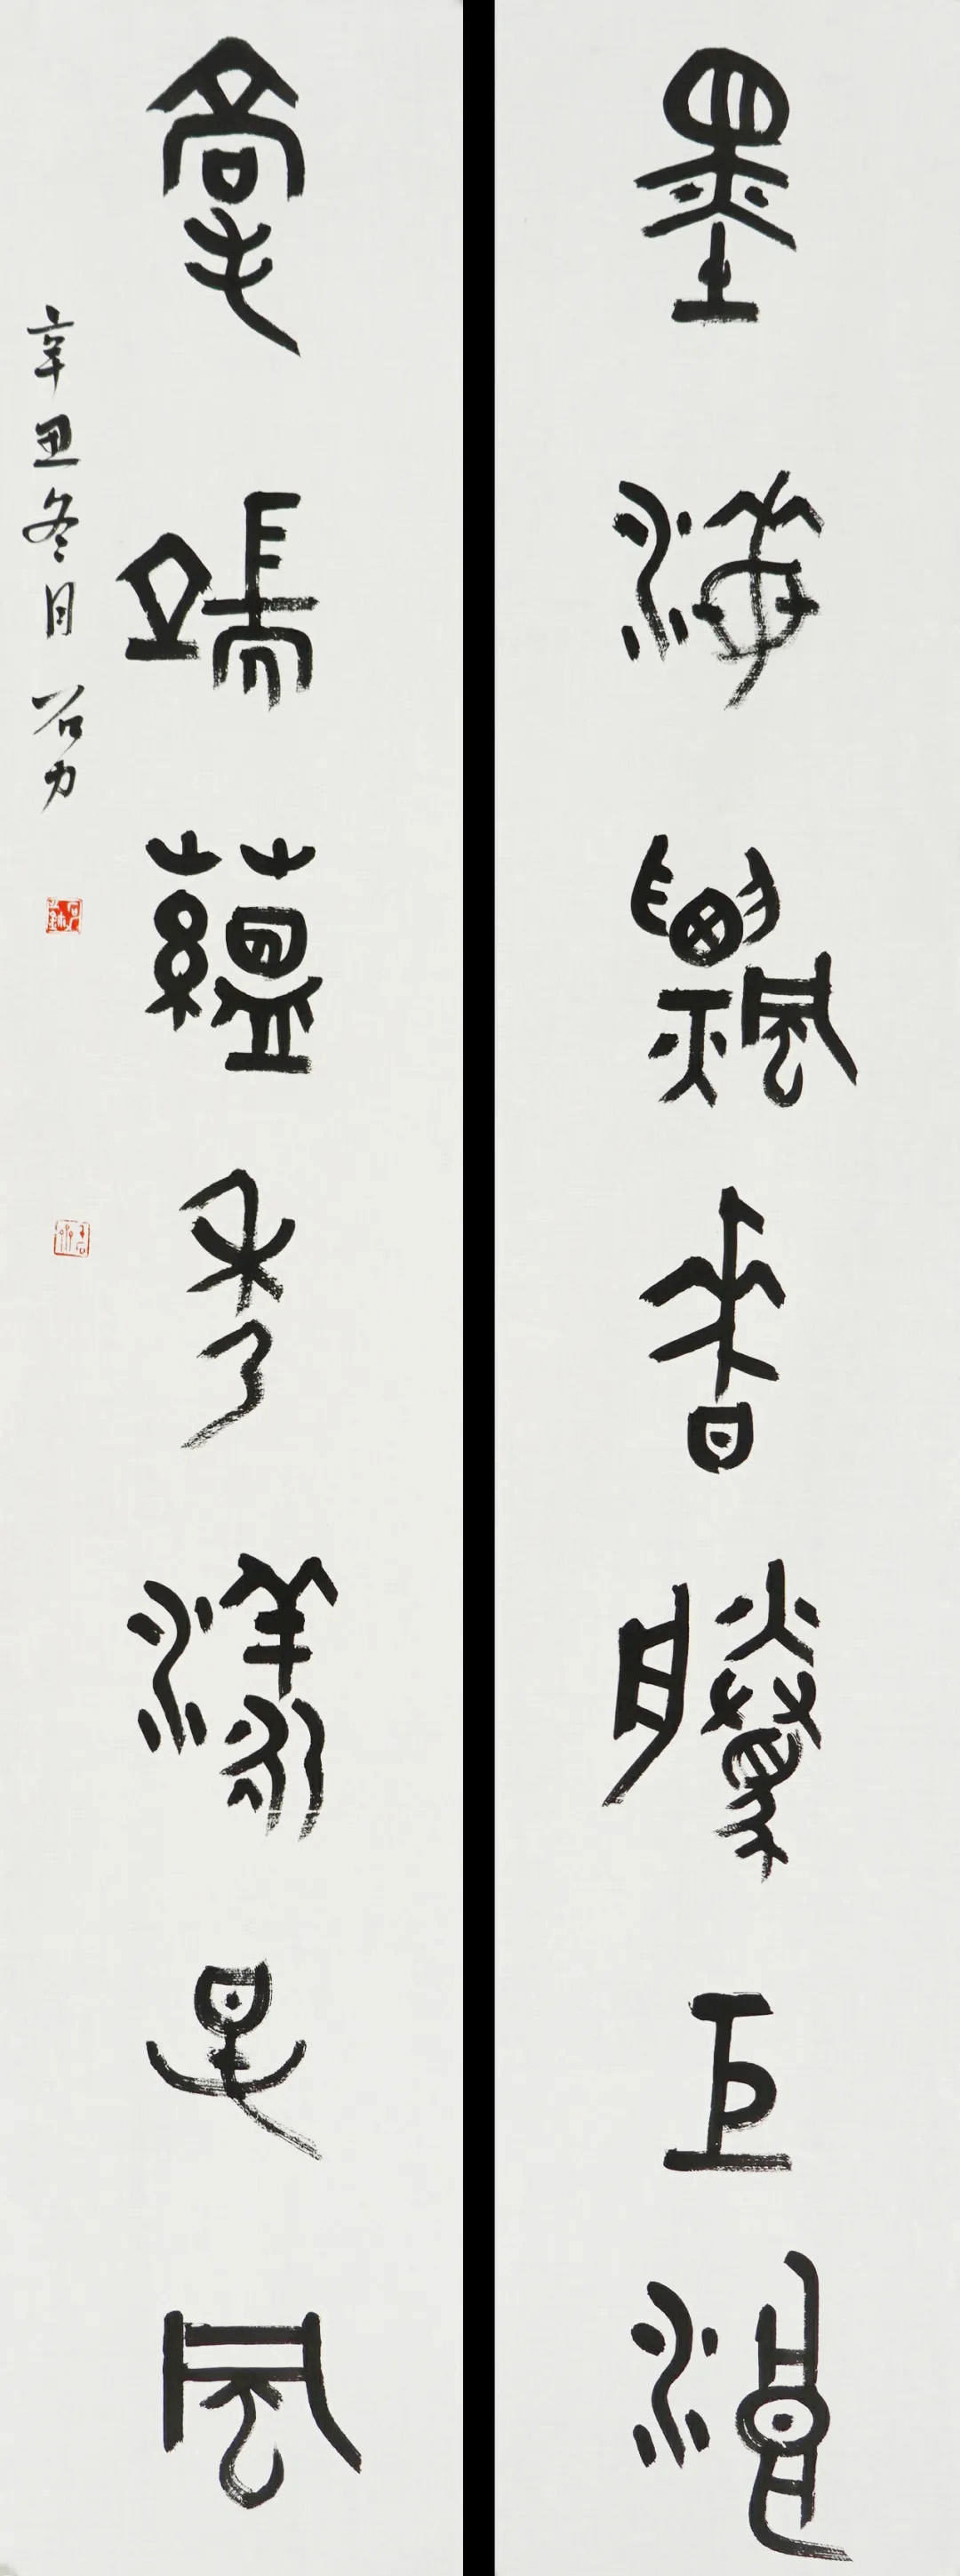 墨海飘香腾巨浪
毫端蕴秀漾春风
辛丑冬月 石力